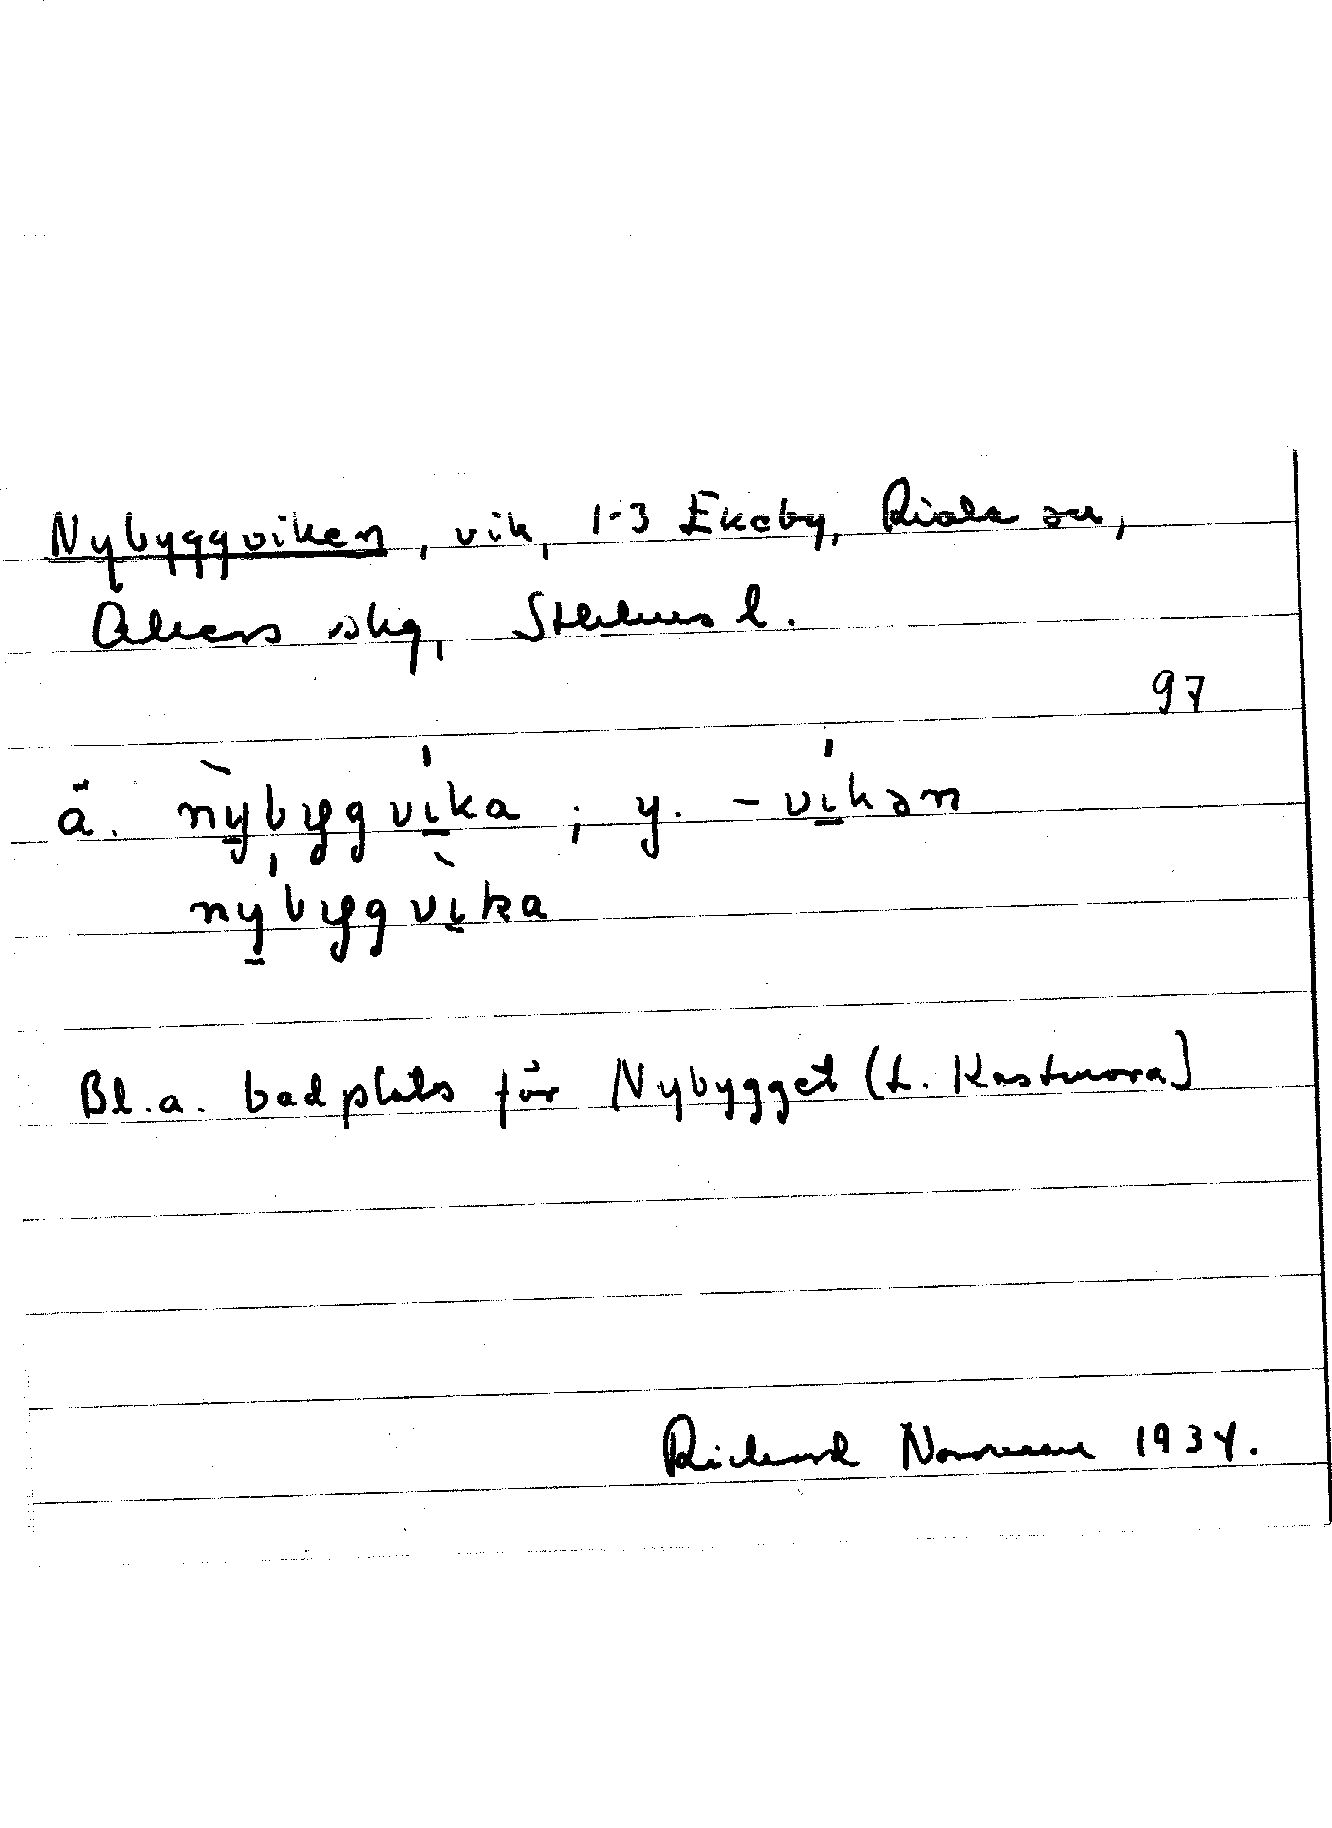 Nybyggviken, vik, 1-3 Ekeby, Riala sn,
Åkers skg, Sthlms l.
97
ä. nỳbyggvíka ; y. -víkən
nýbyggvìka
Bl.a. badplats för Nybygget (L. Kastmora)
Richard Norrman 1934.